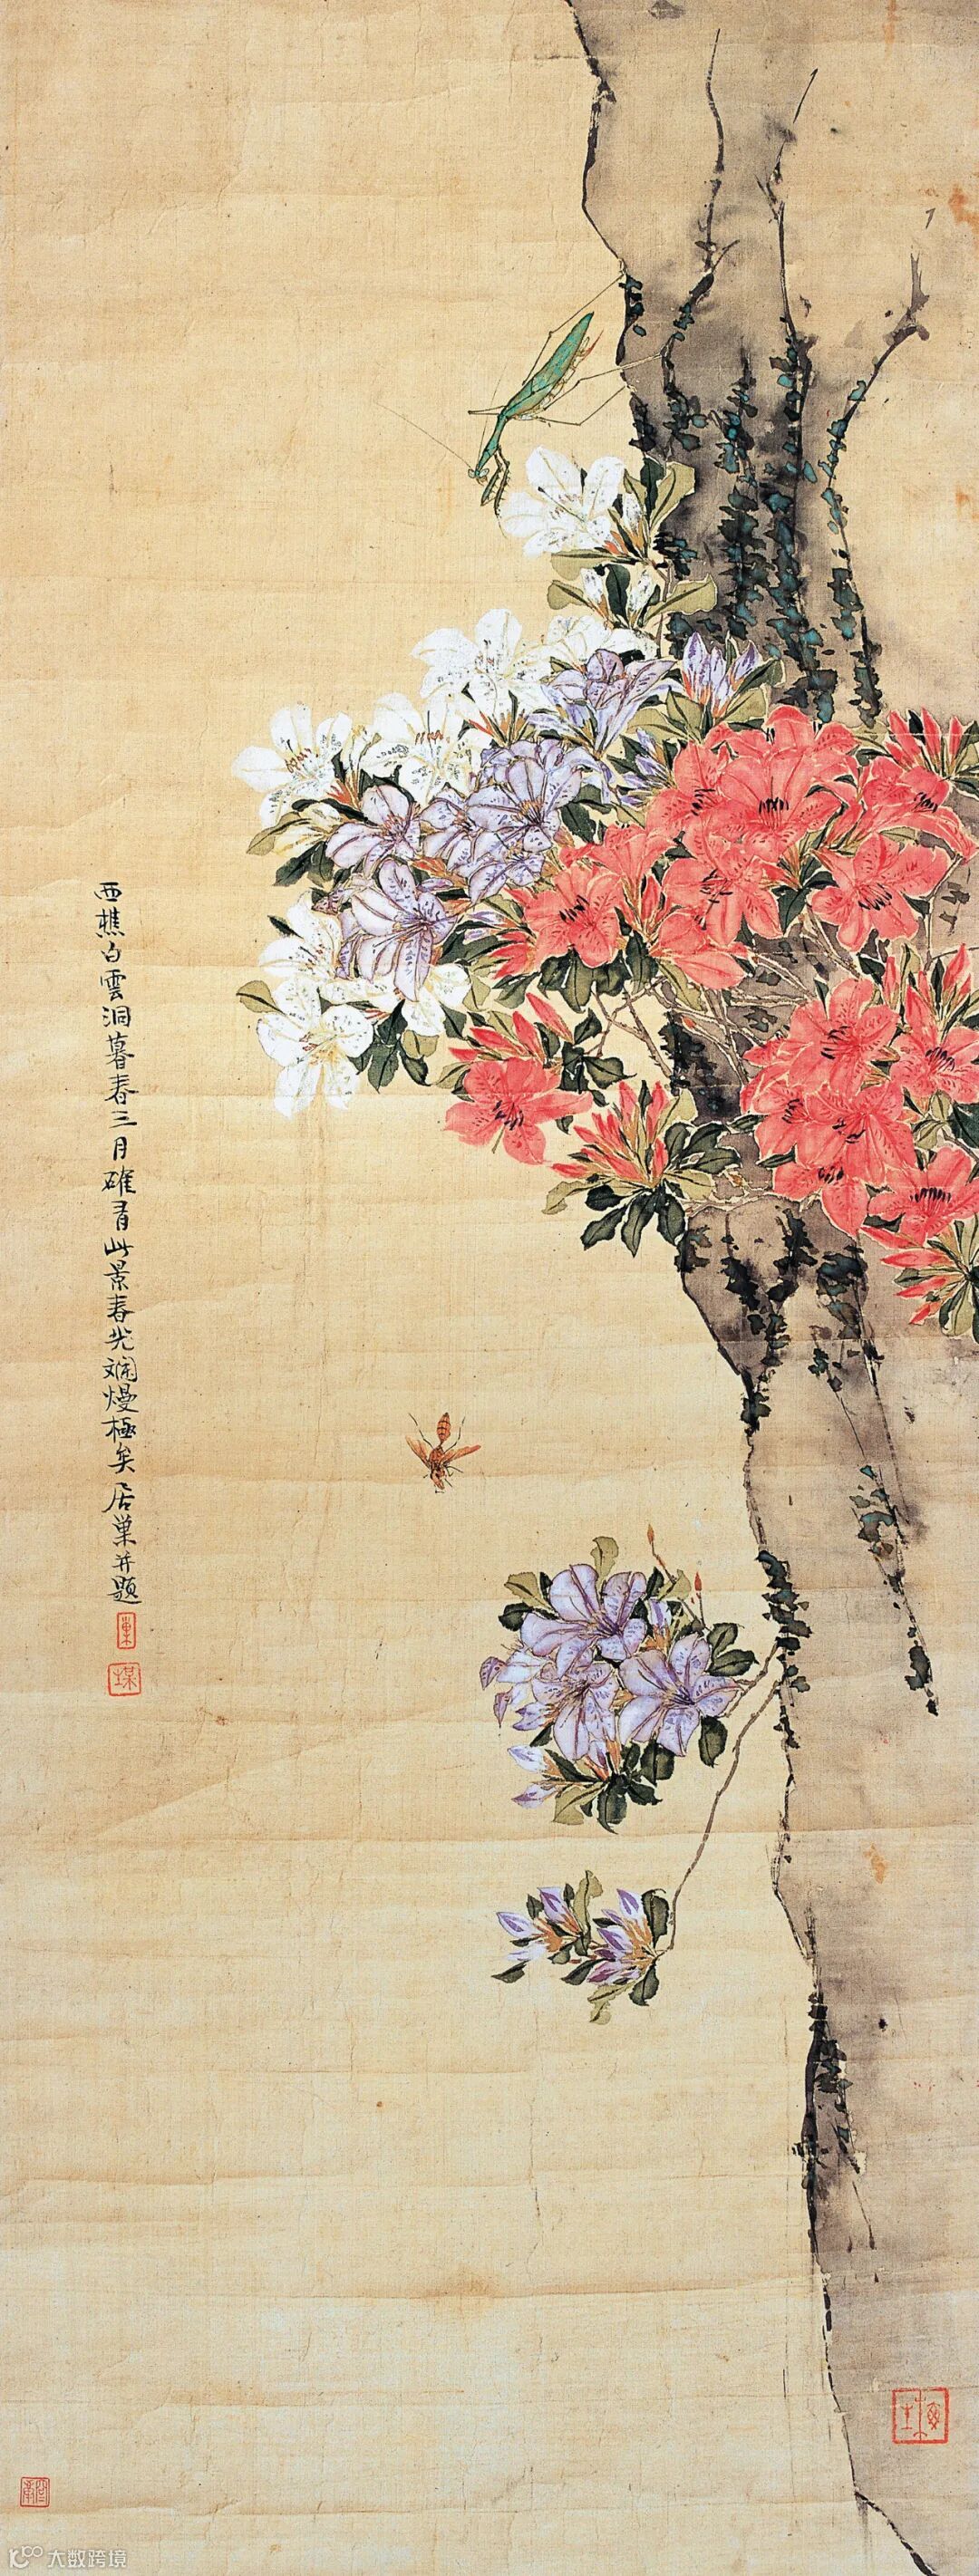 西樵白雲洞暮春三月確有此景春光斕熳極矣居巢并題
巢
大数跨境